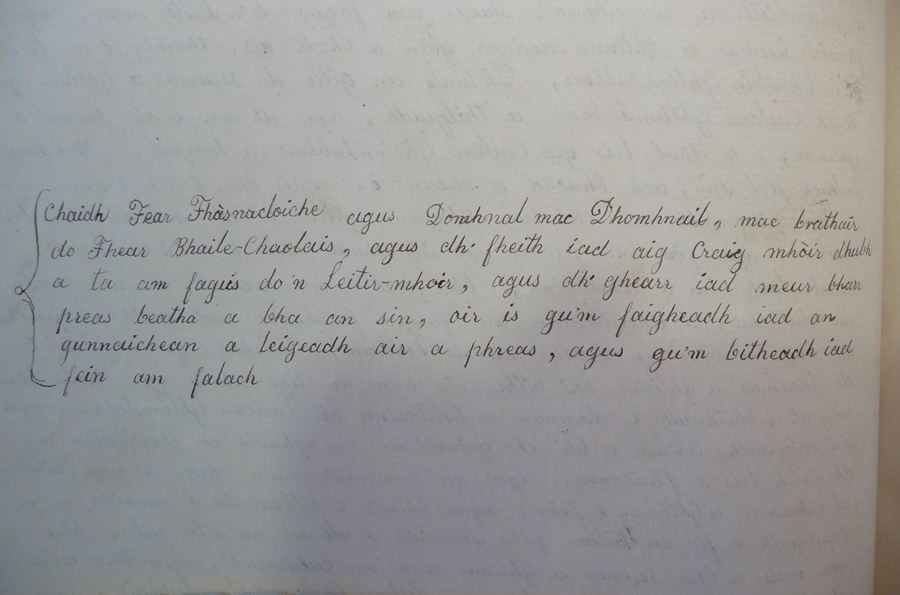 Chaidh Fear Fhàsnacloiche agus Domhnal mac Dhomhnail, mac brathair
do Fhear Bhaile-Chaolais, agus dh' fheith iad aig Craig mhòir dhubh
a ta am fagus do'n Leitir-mhoir, agus dh' ghearr iad meur bharr
preas beatha a bha an sin, oir is gu'm faigheadh iad an
gunnaichean a leigeadh air a phreas, agus gu'm bitheadh iad
fein am falach